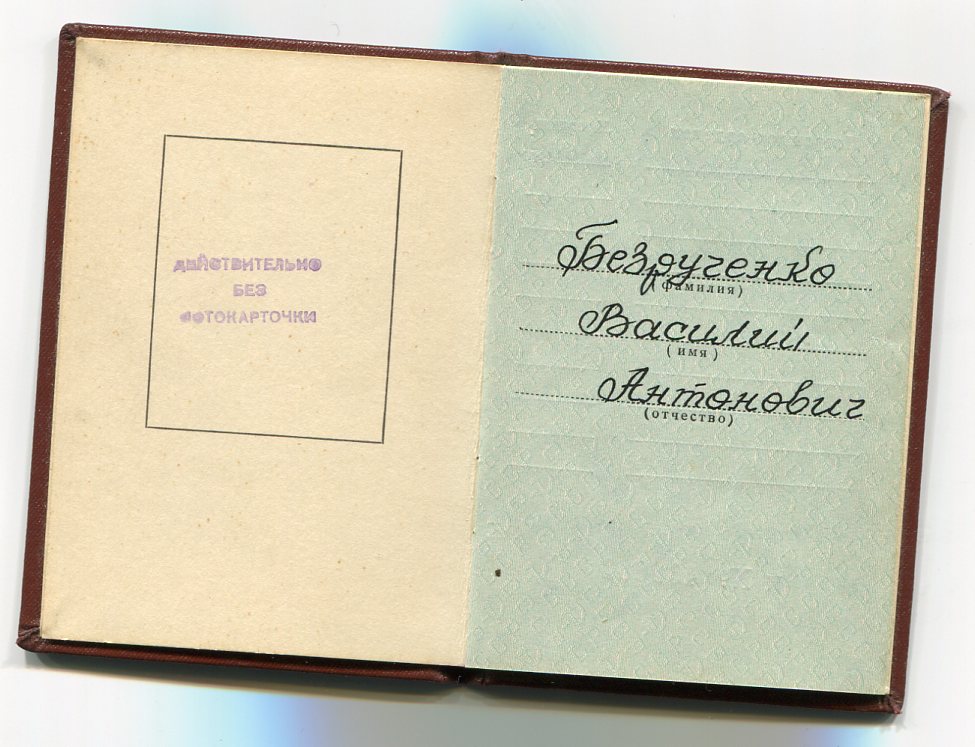 ДЕЙСТВИТЕЛЬНО
БЕЗ
ФОТОКАРТОЧКИ
Безрученко
(фамилия)
Василий
(имя)
Антонович
(отчество)